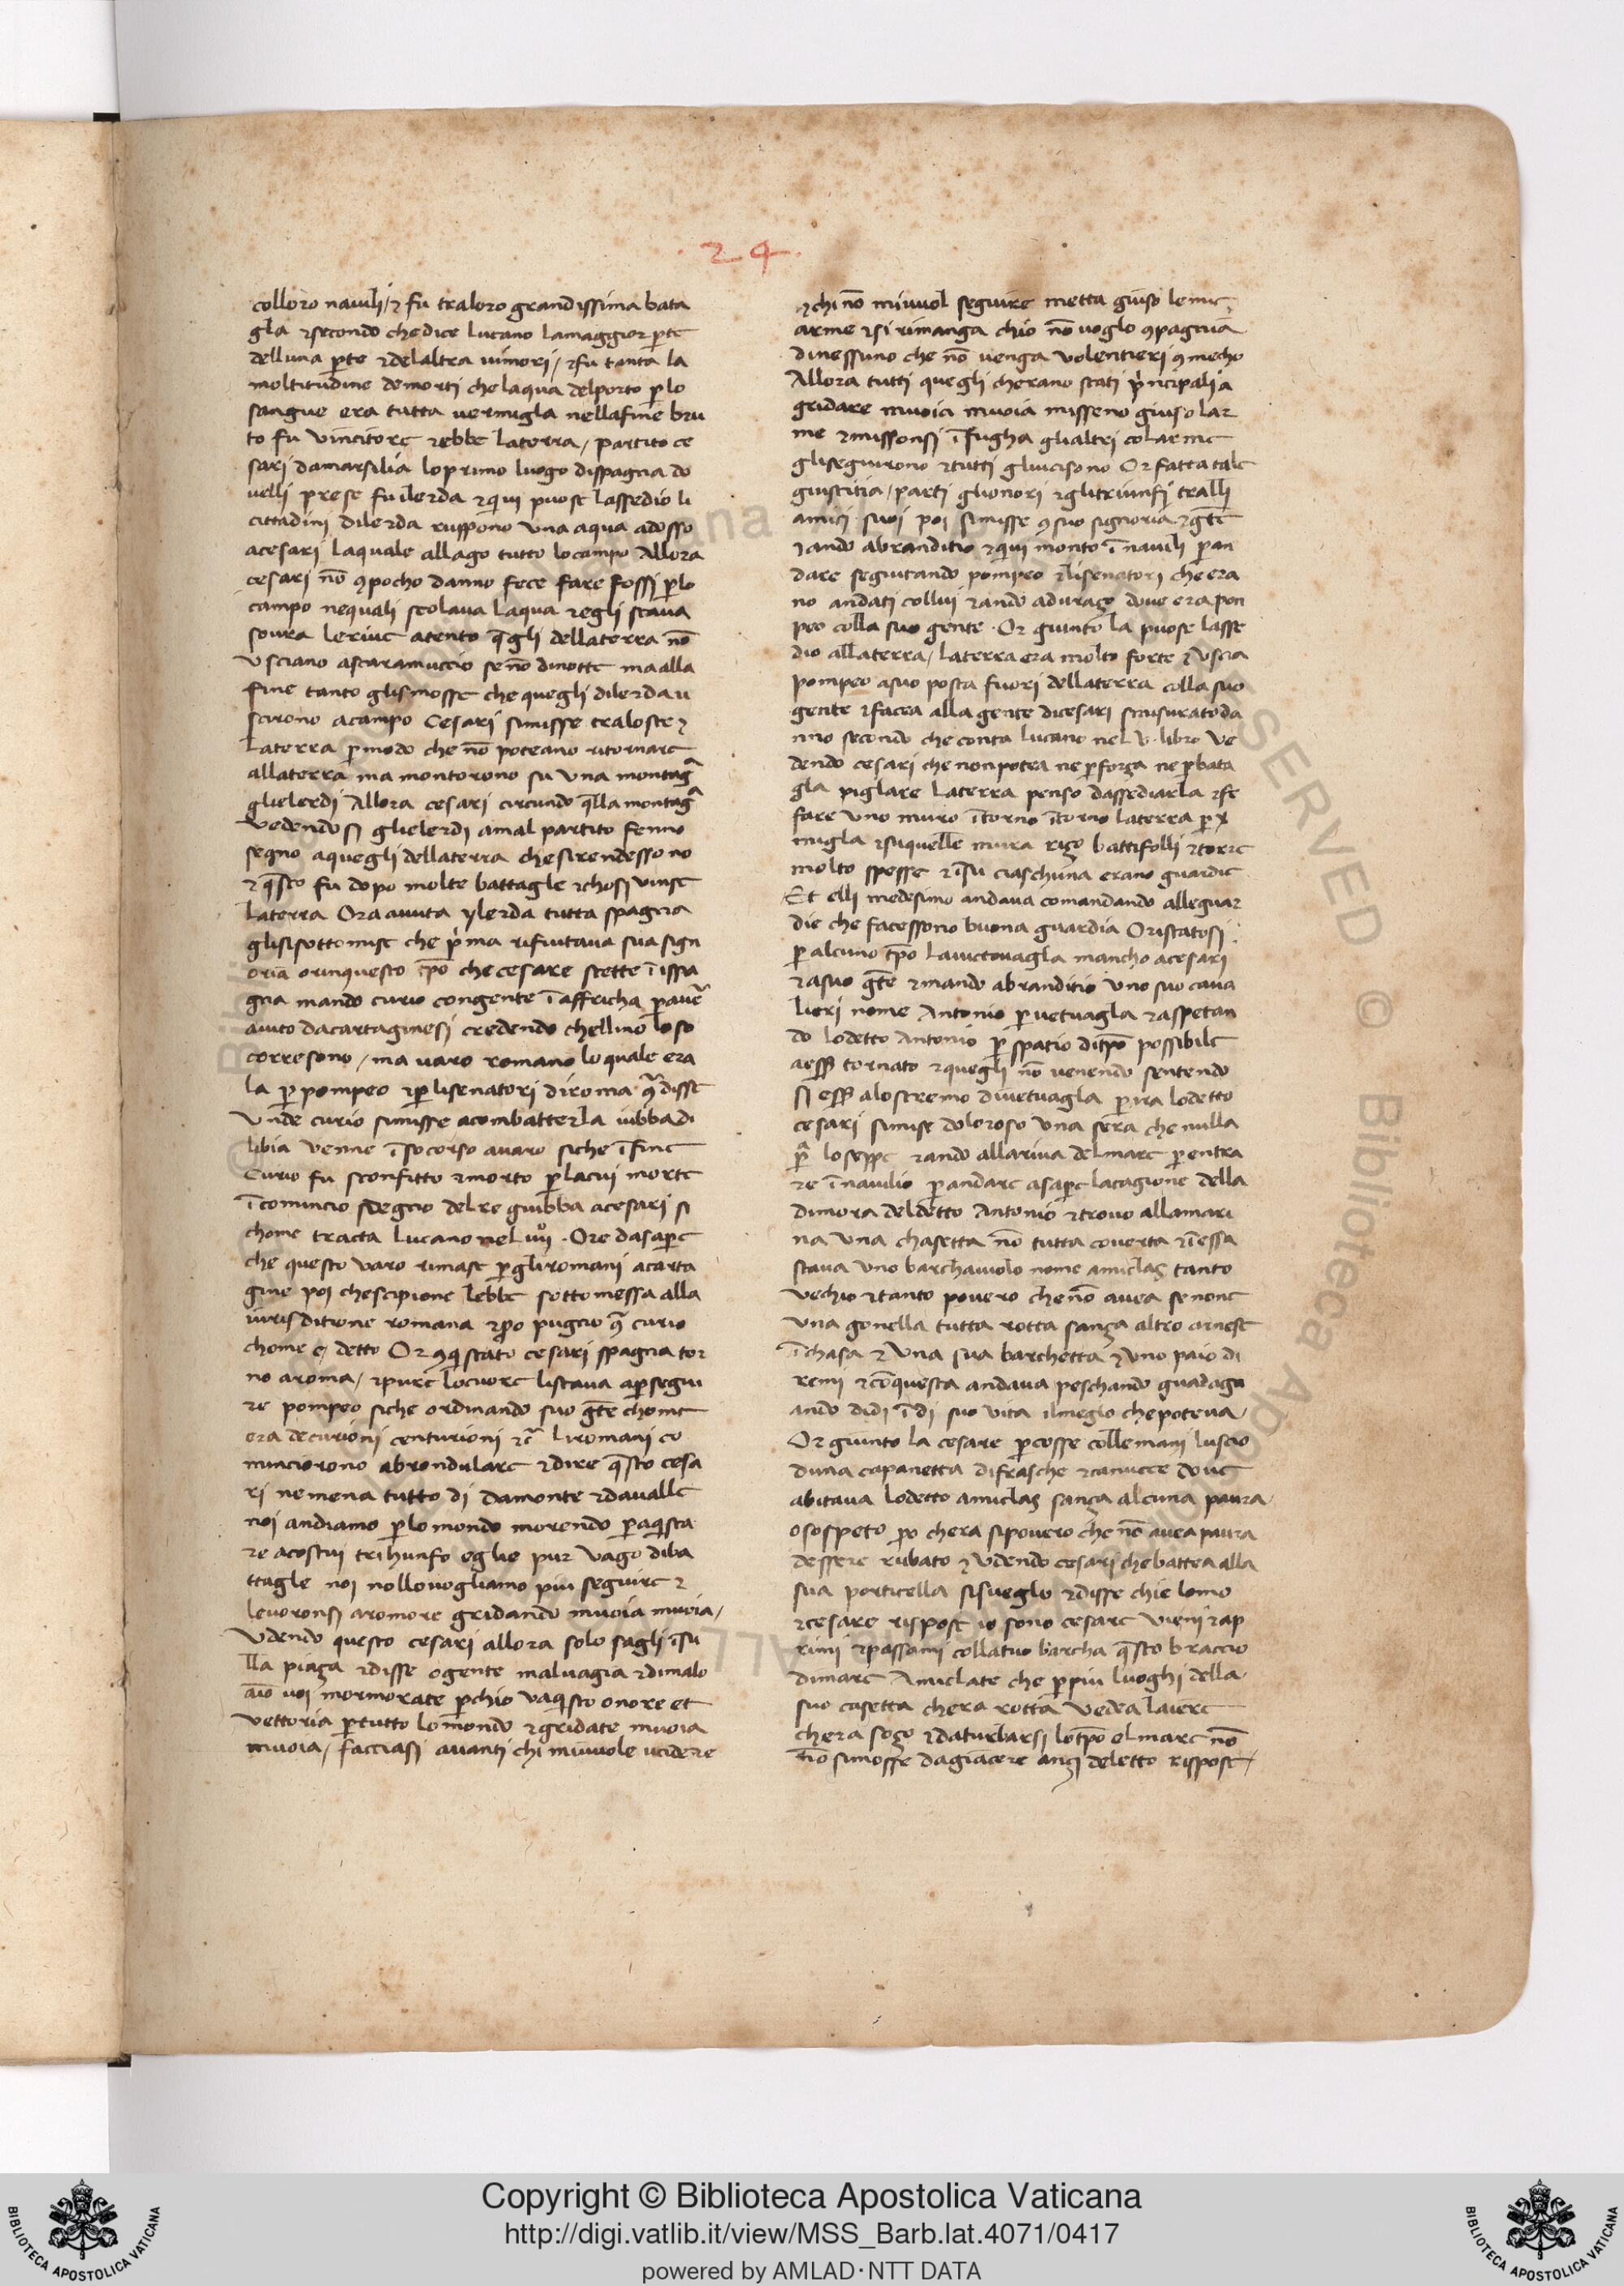 24
colloro nauili / ⁊ fu traloro grandissima bata
gla ⁊ secondo che dice lucano lamaggior ꝑte
delluna ꝑte ⁊ delaltra uimori / ⁊ fu tanta la
moltitudine demorti che laqua delporto ꝑ lo
sangue era tutta uermigla nellafine bru
to fu vincitore ⁊ ebbe laterra / partito ce
sari damarsilia loprimo luogo dispagna do
uelli prese fu ilerda ⁊ qui puose lassedio li
cittadini dilerda ruppono vna aqua adosso
acesari laquale allago tutto lo campo Allora
cesari nō ꝯ pocho danno fece fare fossi ꝑ lo
campo nequali scolaua laqua ⁊ egli staua
soura leriue atento q̄gli dellaterra nō
vsciano ascaramuccio se nō dinotte ma alla
fine tanto glismosse che quegli dilerda u
scirono acampo Cesari simisse traloste ⁊
laterra ꝑ modo che nō poteano ritornare
allaterra ma montorono su vna montag̃
glielerdi Allora cesari circundo q̄lla montag̃
vedendosi glielerdi amal partito fenno
segno aquegli dellaterra che sirendessono
⁊ q̄sto fu dopo molte battagle ⁊ chosi vinse
laterra Ora auuta ylerda tutta spagna
glisisottomise che p̍ma rifiutaua sua sign
oria orinquesto tp̄o che cesare stette ī ispa
gna mando curio con gente ī affricha ꝑ auē
aiuto dacartaginesi credendo chellino loso
corresono / ma uaro romano lo quale era
la ꝑ pompeo ⁊ ꝑ lisenatori diroma ꝯ̄disse
vnde curio simisse acombatterla iubba di
libia venne ī socorso auaro siche ī fine
Curio fu sconfitto ⁊ morto ꝑ lacui morte
īcomincio sdegno del re giubba acesari si
chome tracta lucano nel iiij° . Ore dasaꝑe
che questo varo rimase ꝑ gli romani acarta
gine poi che scipione lebbe sottomessa alla
iurisditione romana ⁊ ꝑo pugno ꝯ̄ curio
chome e detto Or ꝯq̍stato cesari spagna tor
no aroma / ⁊ pure locuore listaua aꝑsegui
re pompeo siche ordinando suo gēte chome
era decurioni centurioni ⁊c̄ li romani co
minciorono abrondulare ⁊ dire q̄sto cesa
ri ne mena tutto di damonte ⁊ dauallc
noi andiamo ꝑ lo mondo morendo ꝑ aq̍sta
re acostui trihunfo eglie pur vago diba
ttagle noi nollouogliamo piu seguire ⁊
leuoronsi aromore gridando muoia muoia /
vdendo questo cesari allora solo sagli ī su
lla piaza ⁊ disse o gente maluagia ⁊ dimalo
aīo uoi mormorate ꝑchio vaq̍sto onore et
vettoria ꝑ tutto lo mondo ⁊ gridate muoia
muoia / facciasi auanti chi miuuole ucidere
⁊ chi nō miuuol seguire metta giuso le mie
arme ⁊ si rimanga chio nō uoglo ꝯpagnia
dinessuno che nō uenga volentieri ꝯ mecho
Allora tutti quegli cherano stati p̍ncipali a
gridare muoia muoia misseno giuso lar
me ⁊ missonsi ī fugha glialtri colarme
gliseguirono ⁊ tutti gliucisono Or fatta tale
giustitia / parti glionori ⁊ glitriunfi tralli
amici suoi poi simisse ꝯ suo signoria ⁊ gēte
⁊ ando abranditio ⁊ qui monto ī nauili ꝑ an
dare seguitando pompeo ⁊ lisenatori che era
no andati collui ⁊ ando adurazo doue era pon
peo colla suo gente . Or giunto la puose lasse
dio allaterra / laterra era molto forte ⁊ vscia
pompeo asuo posta fuori dellaterra colla suo
gente ⁊ facea alla gente dicesari smisurato da
nno secondo che conta lucano nel v . libro ve
dendo cesari che non potea ne ꝑ forza ne ꝑ bata
gla piglare laterra penso dassediarla ⁊ fe
fare vno muro ītorno ītorno laterra ꝑ x
migla ⁊ su quelle mura rizo battifolli ⁊ torre
molto spesse ⁊ ī su ciaschuna erano guardie
Et elli medesimo andaua comandando alleguar
die che facessono buona guardia Oristatosi
ꝑ alcuno tp̄o lauictouagla mancho acesari
⁊ asuo gēte ⁊ mando abranditio vno suo caua
lieri nome Antonio ꝑ uetuagla ⁊ aspetan
do lodetto Antonio ꝑ spatio ditp̄o possibile
aeſſ̄ tornato ⁊ quegli nō uenendo sentendo
si eſſ̄ alostremo diuetuagla ꝑ ira lodetto
cesari simise doloroso vna sera che nulla
ꝑ̄ lo seppe ⁊ ando allariua delmare ꝑ entra
re ī nauilio ꝑ andare asaꝑe lacagione della
dimora deldetto Antonio ⁊ trouo allamari
na vna chasetta nō tutta couerta ⁊ ī essa
staua vno barchauiolo nome amiclas tanto
vechio ⁊ tanto pouero che nō auea se none
vna gonella tutta rotta sanza altro arnese
ī chasa ⁊ vna sua barchetta ⁊ vno paio di
remi ⁊ cō questa andaua peschando guadagn
ando didi ī di suo vita ilmeglo che poteua /
Or giunto la cesare ꝑcosse collemani luscio
duna capanetta difrasche ⁊ canucce doue
abitaua lodetto amiclas sanza alcuna paura
o sospeto ꝑo chera sipouero che nō auea paura
dessere rubato ⁊ vdendo cesari che battea alla
sua porticella sisueglo ⁊ disse chie lomo
⁊ cesare rispose io sono cesare vieni ⁊ ap
rimi ⁊ passami collatuo barcha q̄sto braccio
dimare Amiclate che ꝑ piu luoghi della
suo casetta chera rotta vedea laiere
chera sozo ⁊ daturbarsi lotp̄o elmare nō
nō simosse dagiacere anzi deletto rispose /
Copyright © Biblioteca Apostolica Vaticana
http://digi.vatlib.it/view/MSS_Barb.lat.4071/0417
powered by AMLAD·NTT DATA